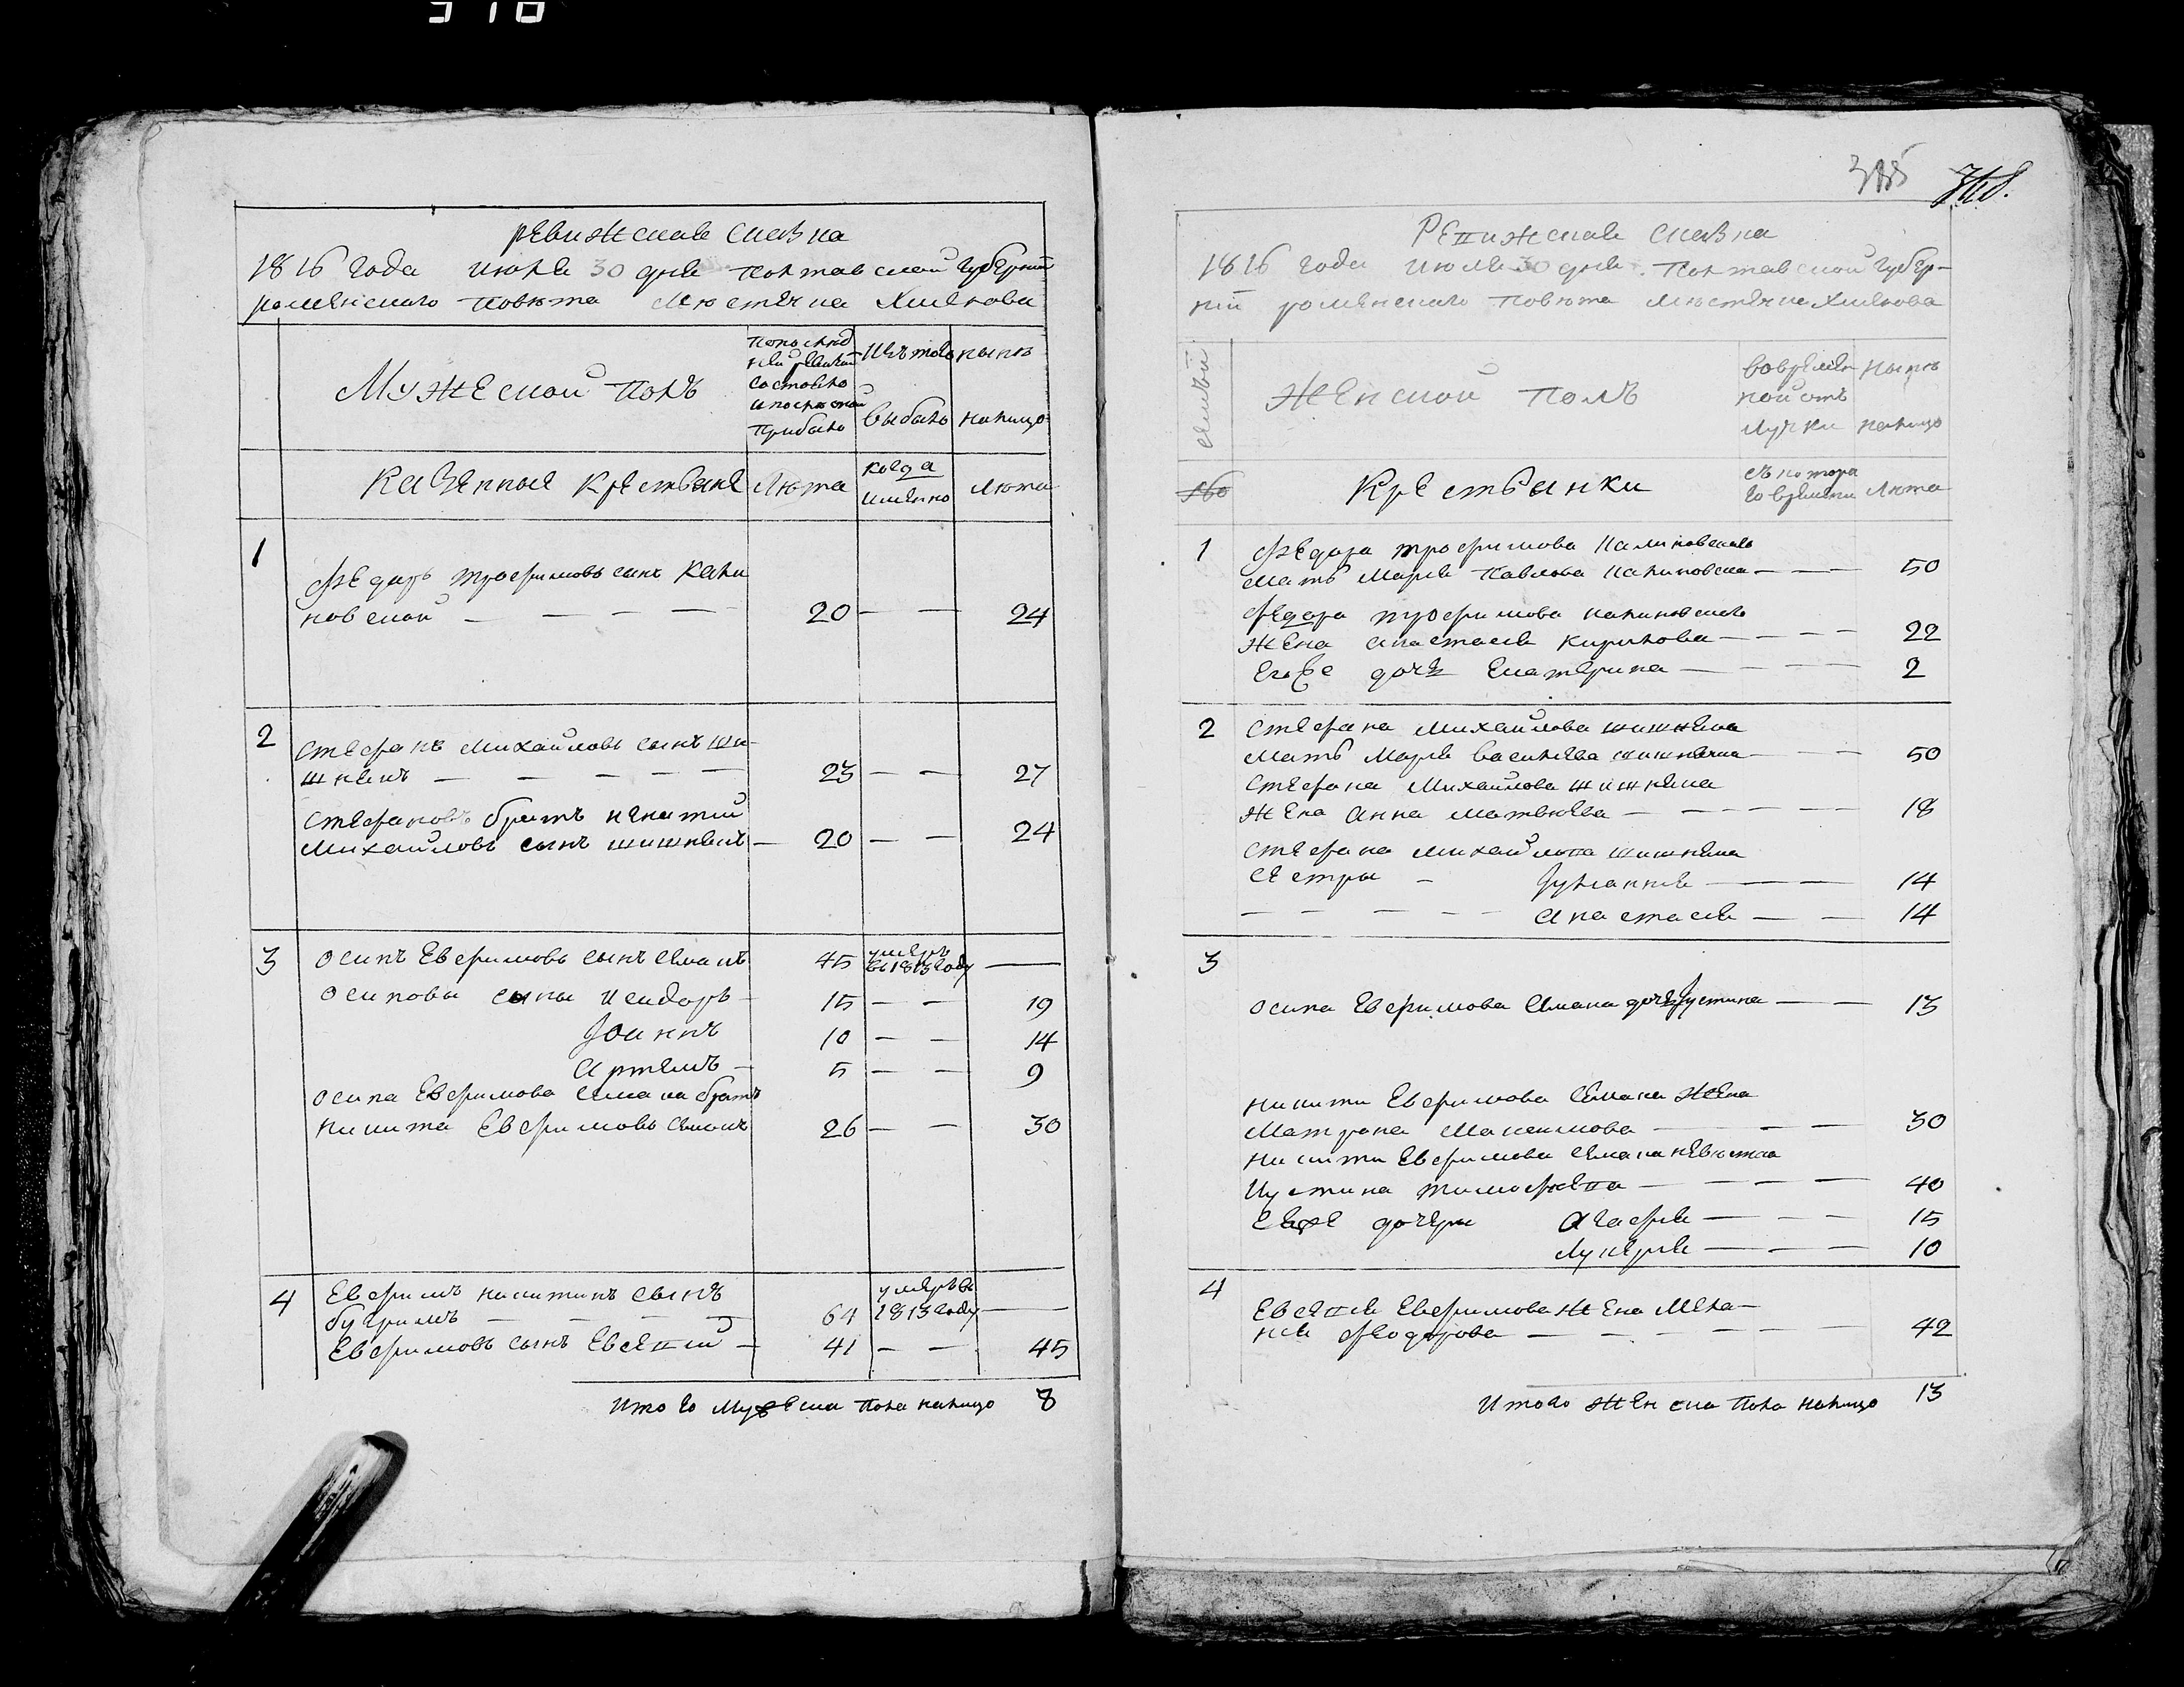 318
Ревижская сказка
1816 года июля 30 дня Полтавской губерний
роменского повѣта мѣстечка Хмелова
Мужеской полъ
По послѣд
ней ревизий
состояло
и послѣ оной
прибыло
Изъ того
выбыло
нынѣ
налицо
Казенные крестьяне
лѣта
когда
именно
лѣта
1
Федоръ трофимовъ сынъ Кали
новской — — — — 20 — — 24
2
Стефанъ михайловъ сынъ ши-
шкинъ — — — — — 23 — — 27
Стефановъ братъ игнатий
михайловъ сынъ шишкинъ — 20 — — 24
3
Осипъ Евфимовъ сынъ Семакъ 45 умеръ
въ 1813 году —
Осиповы сыны Исидоръ — 15 — — 19
Иоаннъ 10 — — 14
Артемъ — 5 — — 9
Осипа Евфимова Семака братъ
Никита Евфимовъ Семакъ 26 — — 30
4
Евфимъ никитинъ сынъ
бугримъ — — — — 64 умеръ въ
1813 году —
Евфимовъ сынъ Евсевий — 41 — — 45
Итого Мужеска пола налицо 8
318.
Ревижская сказка
1816 года июля 30 дня. Полтавской губер-
ний роменского повѣта мѣстечка Хмелова
Женской полъ
во времен
ной от
лучки
нынѣ
налицо
Крестьянки
съ котора
го времени
лѣта
1
Федора трофимова Калиновского
мать Марья Павлова Калиновска — — — 50
Федора трофимова калиновского
жена анастасия Кирилова — — — — 22
Его же дочь Екатерина — — — — 2
2
Стефана михайлова шишкина
мать Марья васильева шишкина — — — 50
Стефана Михайлова шишкина
жена анна матвѣева — — — — — 18
Стефана михайлова шишкина
сестры — Иулиания — — — 14
— — — — — анастасия — — 14
3
Осипа Евфимова Семака дочь Иустина — — 13
Никиты Евфимова Семака жена
Матрона Максимова — — — — 30
Никиты Евфимова Семака невѣстка
Иустина тимофеева — — — — 40
Еяже дочери Агафия — — — 15
Лукерия — — — 10
4
Евсевия Евфимова жена Мела-
ния Феодорова — — — — — — 42
Итого женска пола налицо 13